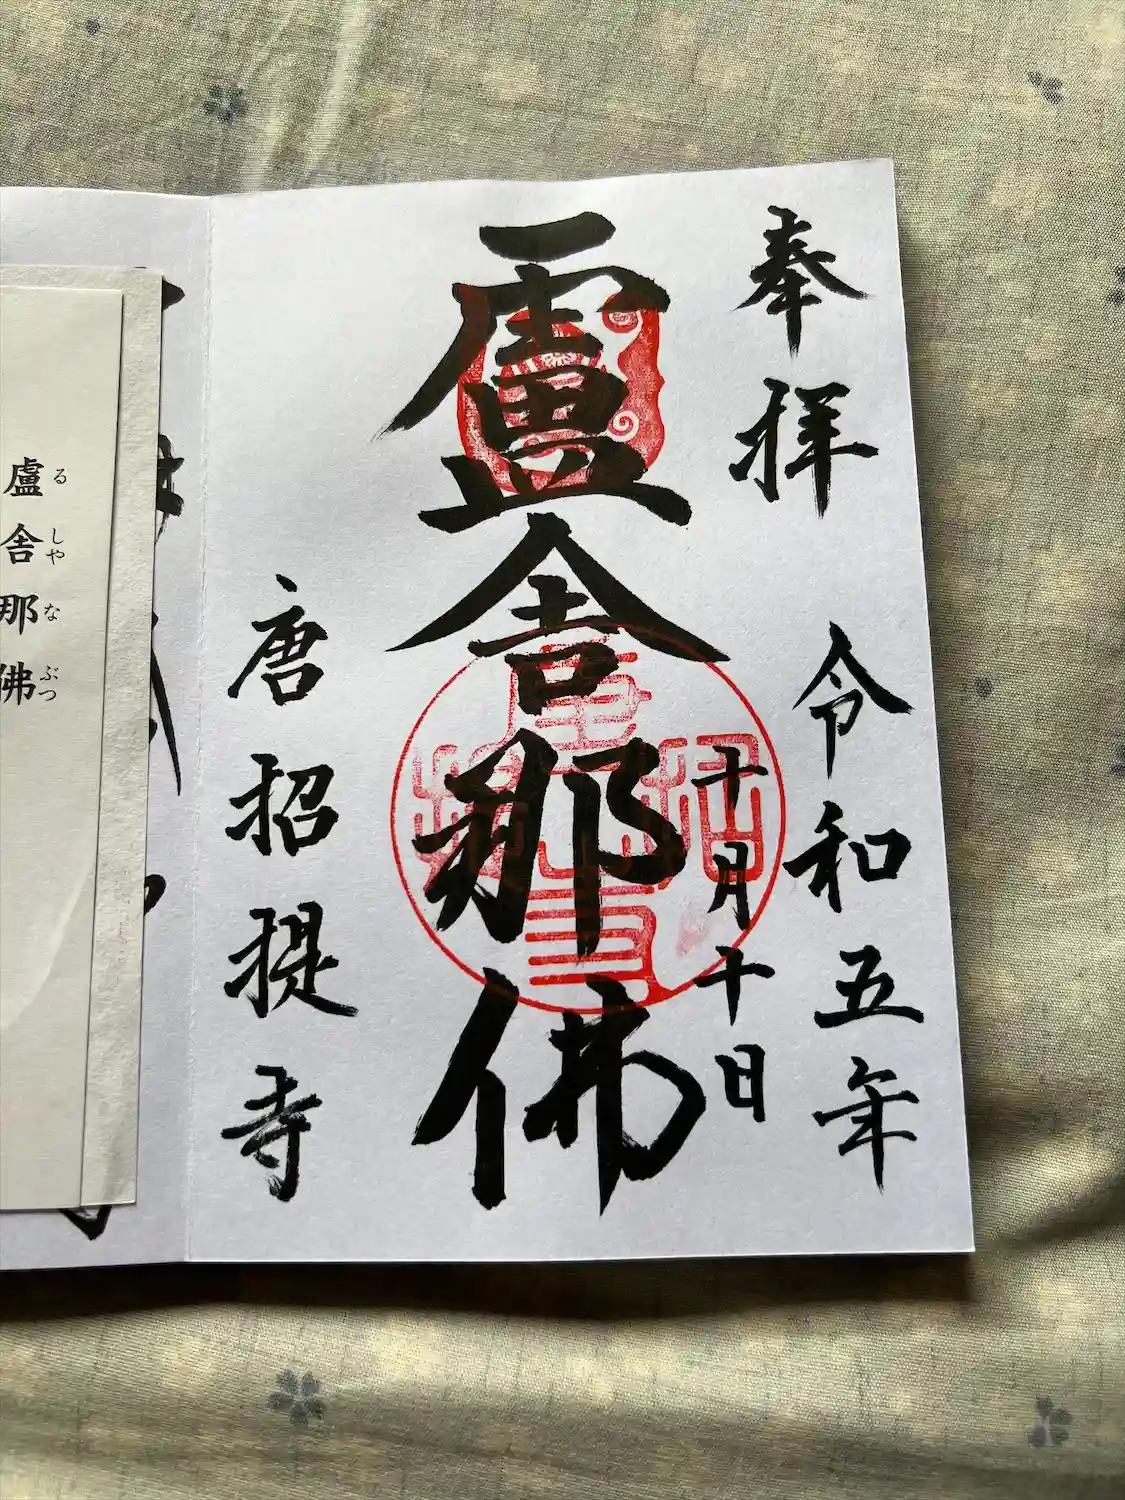 奉拝
令和五年
十月十日
盧舎那佛
唐招提寺
盧舎那佛
るしやなぶつ